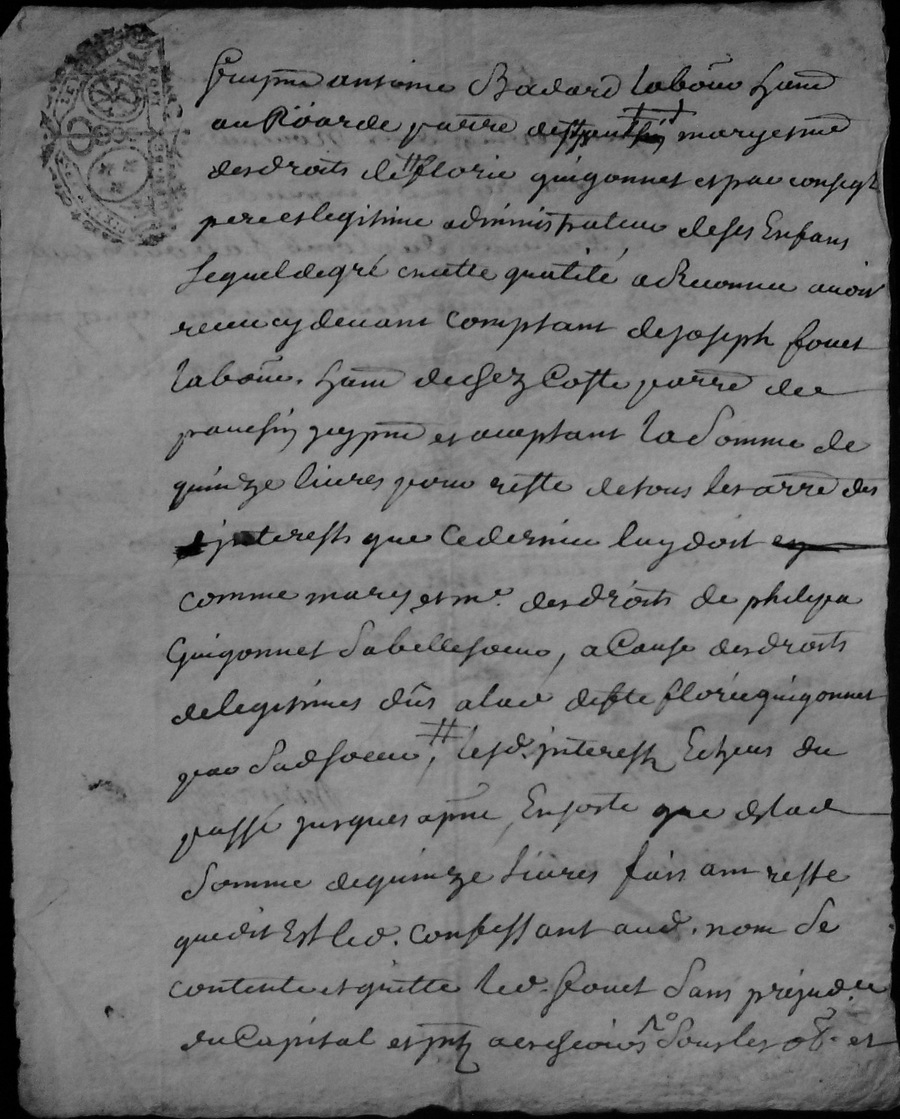 antoine Badard labour habt
au Roard parre de marye et me
des droits de flori guigonnet et par conseqt
pere et legitime administrateur de ses Enfans
Lequel de gré en cette qualité a Reconnu avoir
receu cy devant comptant de joseph fouet
labour. habt de chez Coste parre de
pnt et aceptant la Somme de
quinze livres pour reste de tous les arre des
jnterests que ce dernier luy doit
comme mary et me. des droits de philipa
Guigonnet Sa belle soeur, a Cause des droits
de legitimes dus a lad defte florie guigonnet
par Sad soeur, lesd. jnterests Echeus du
passé jusques a pnt, En sorte que de lad
Somme de quinze livres faisant reste
que dit Est led. confessant aud. nom Se
contente et quitte led. fouet Sans préjudce
du Capital et jnts a escheoir Sous les ob. et